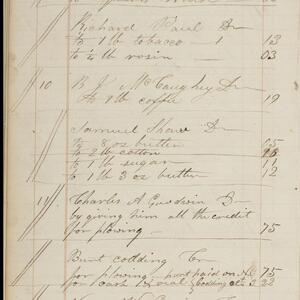 Richard Paul Dr
to 1 lb tobacco 1 13
to ¼ lb rosin 03
10 B F McCaughey Dr
to 1 lb coffee 19
Samuel Shaw Dr
to 8 oz butter 05
to 2 lb cotton
to 1 lb sugar 11
to 1 lb 3 oz butter 12
11 Charles A Goodwin Dr
by giving him all the credit
for plowing 75
Burt codding Cr
for plowing Burt paid on 75
for cash 22